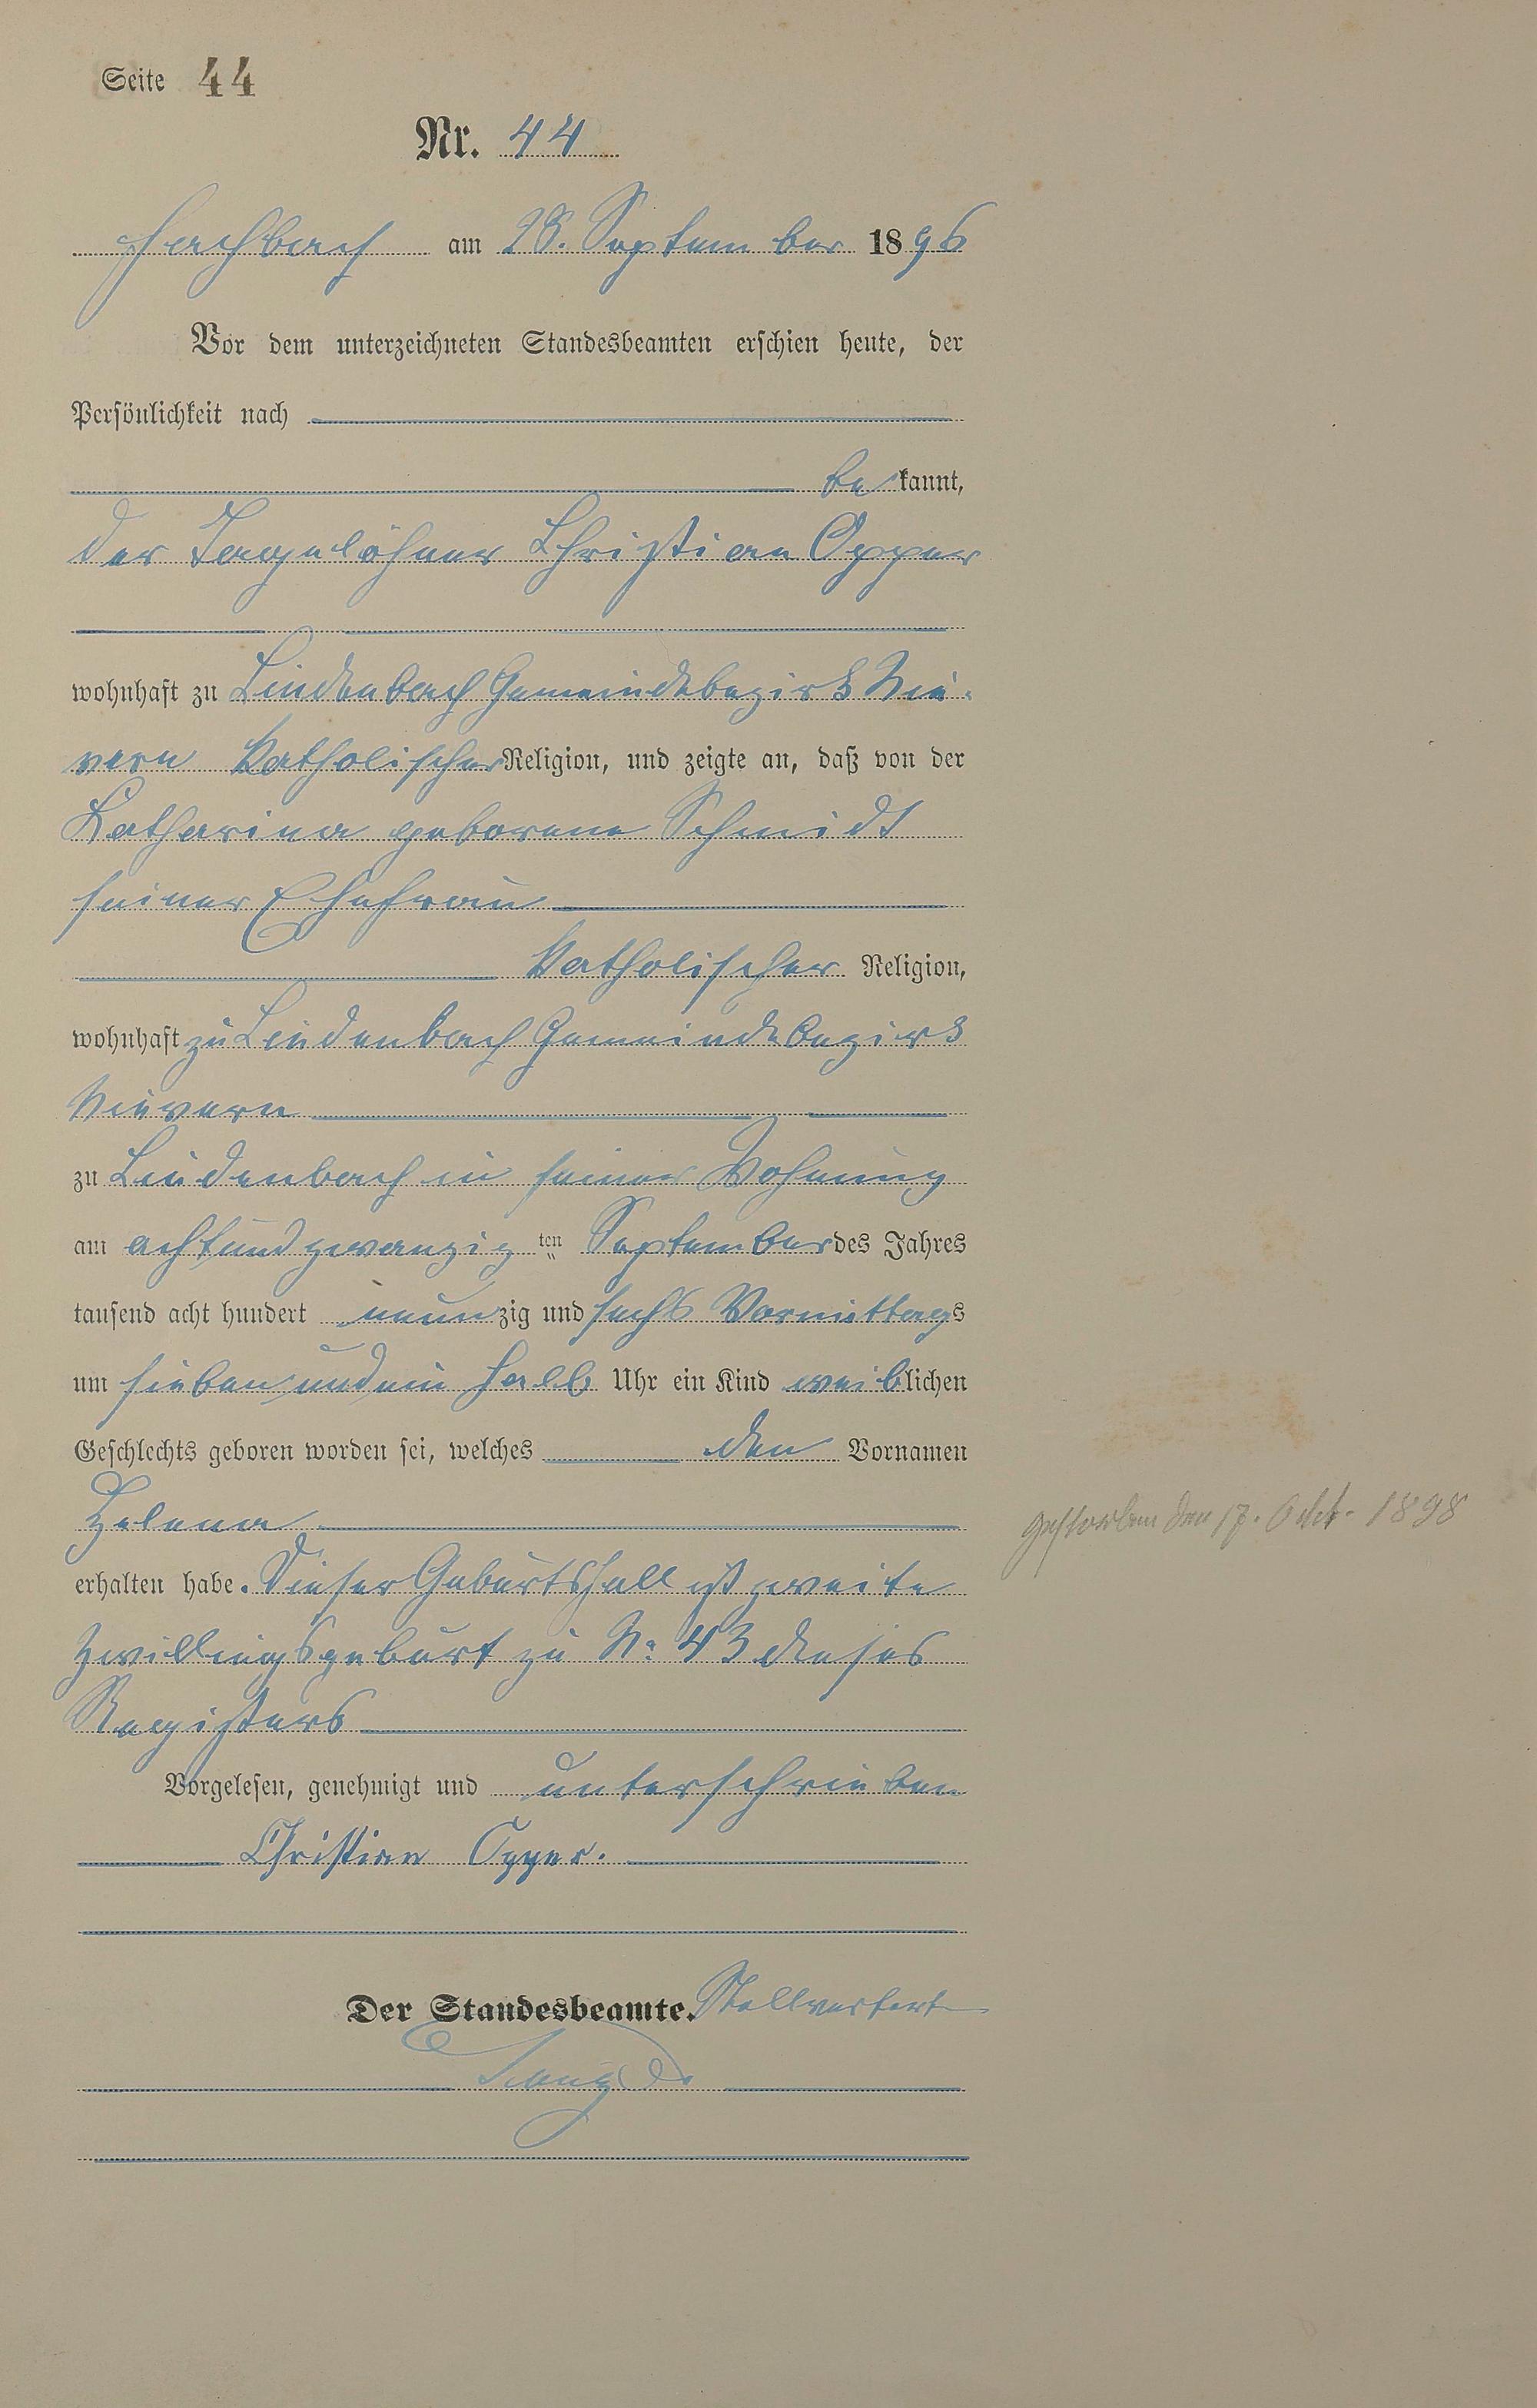 Seite 44
Nr. 44
Fachbach am 28. September 1896
Vor dem unterzeichneten Standesbeamten erschien heute, der
Persönlichkeit nach
bekannt,
der Tagelöhner Christian Opper
wohnhaft zu Lindenbach Gemeindebezirks Nie-
vern katholischer Religion, und zeigte an, daß von der
Katharina geborene Schmidt
seiner Ehefrau
katholischer Religion,
wohnhaft zu Lindenbach Gemeindebezirks
Nievern
zu Lindenbach in seiner Wohnung
am achtundzwanzigten September des Jahres
tausend acht hundert neunzig und sechs Vormittags
um sieben und ein halb Uhr ein Kind weiblichen
Geschlechts geboren worden sei, welches den Vornamen
Helena
gestorben den 17. Octbr. 1898
erhalten habe. Dieser Geburtsfall ist zweite
Zwillingsgeburt zu No 43 dieses
Registers
Vorgelesen, genehmigt und unterschrieben
Christian Opper.
Der Standesbeamte. Stellvertert